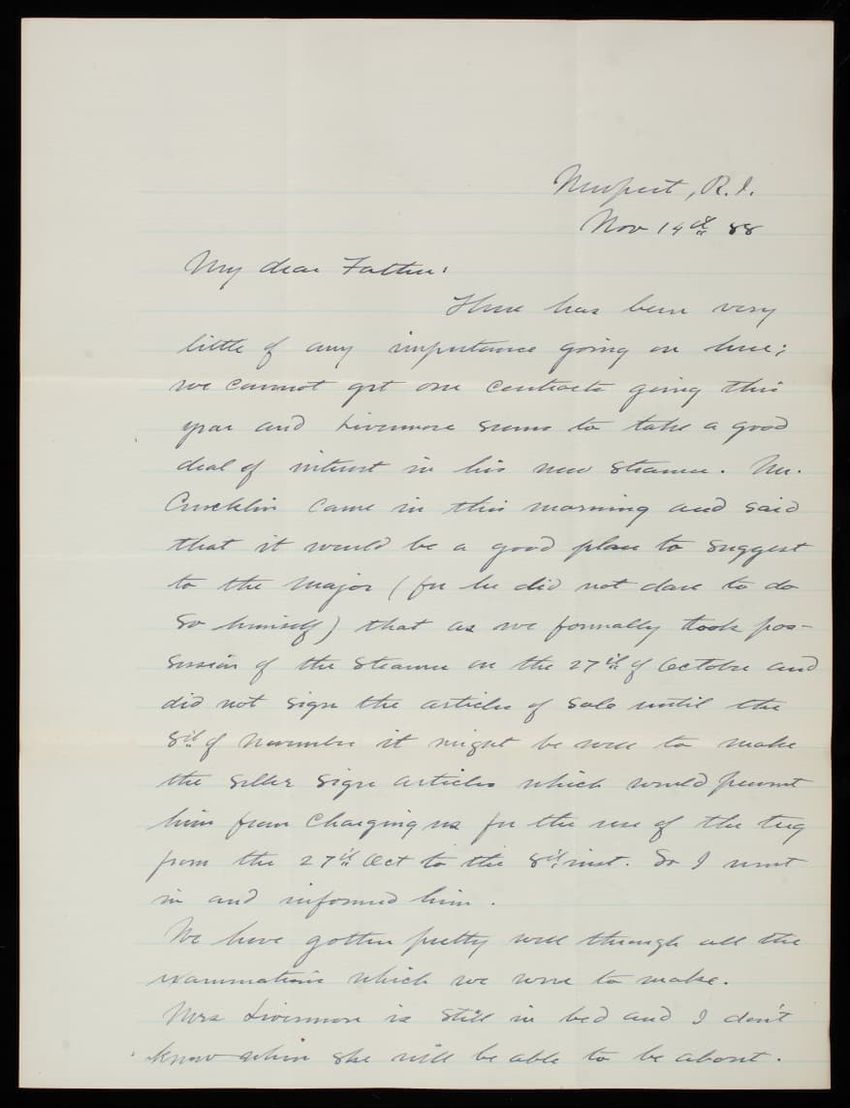 Newport, R.I.
Nov 14th 88
My dear Father:
There has been very
little of any importance going on here;
we cannot get our contracts going this
year and Livermore seems to take a good
deal of interest in his new steamer. Mr.
came in this morning and said
that it would be a good plan to suggest
to the Major (for he did not dare to do
so himself) that as we formally took pos-
session of the steamer on the 27th of October and
did not sign the articles of sale until the
8th of November it might be well to make
the seller sign articles which would prevent
him from charging us for the use of the tug
from the 27th Oct to the 8th inst. So I went
in and informed him.
We have gotten pretty well through all the
examinations which we were to make.
Mrs Livermore is still in bed and I don't
know when she will be able to be about.